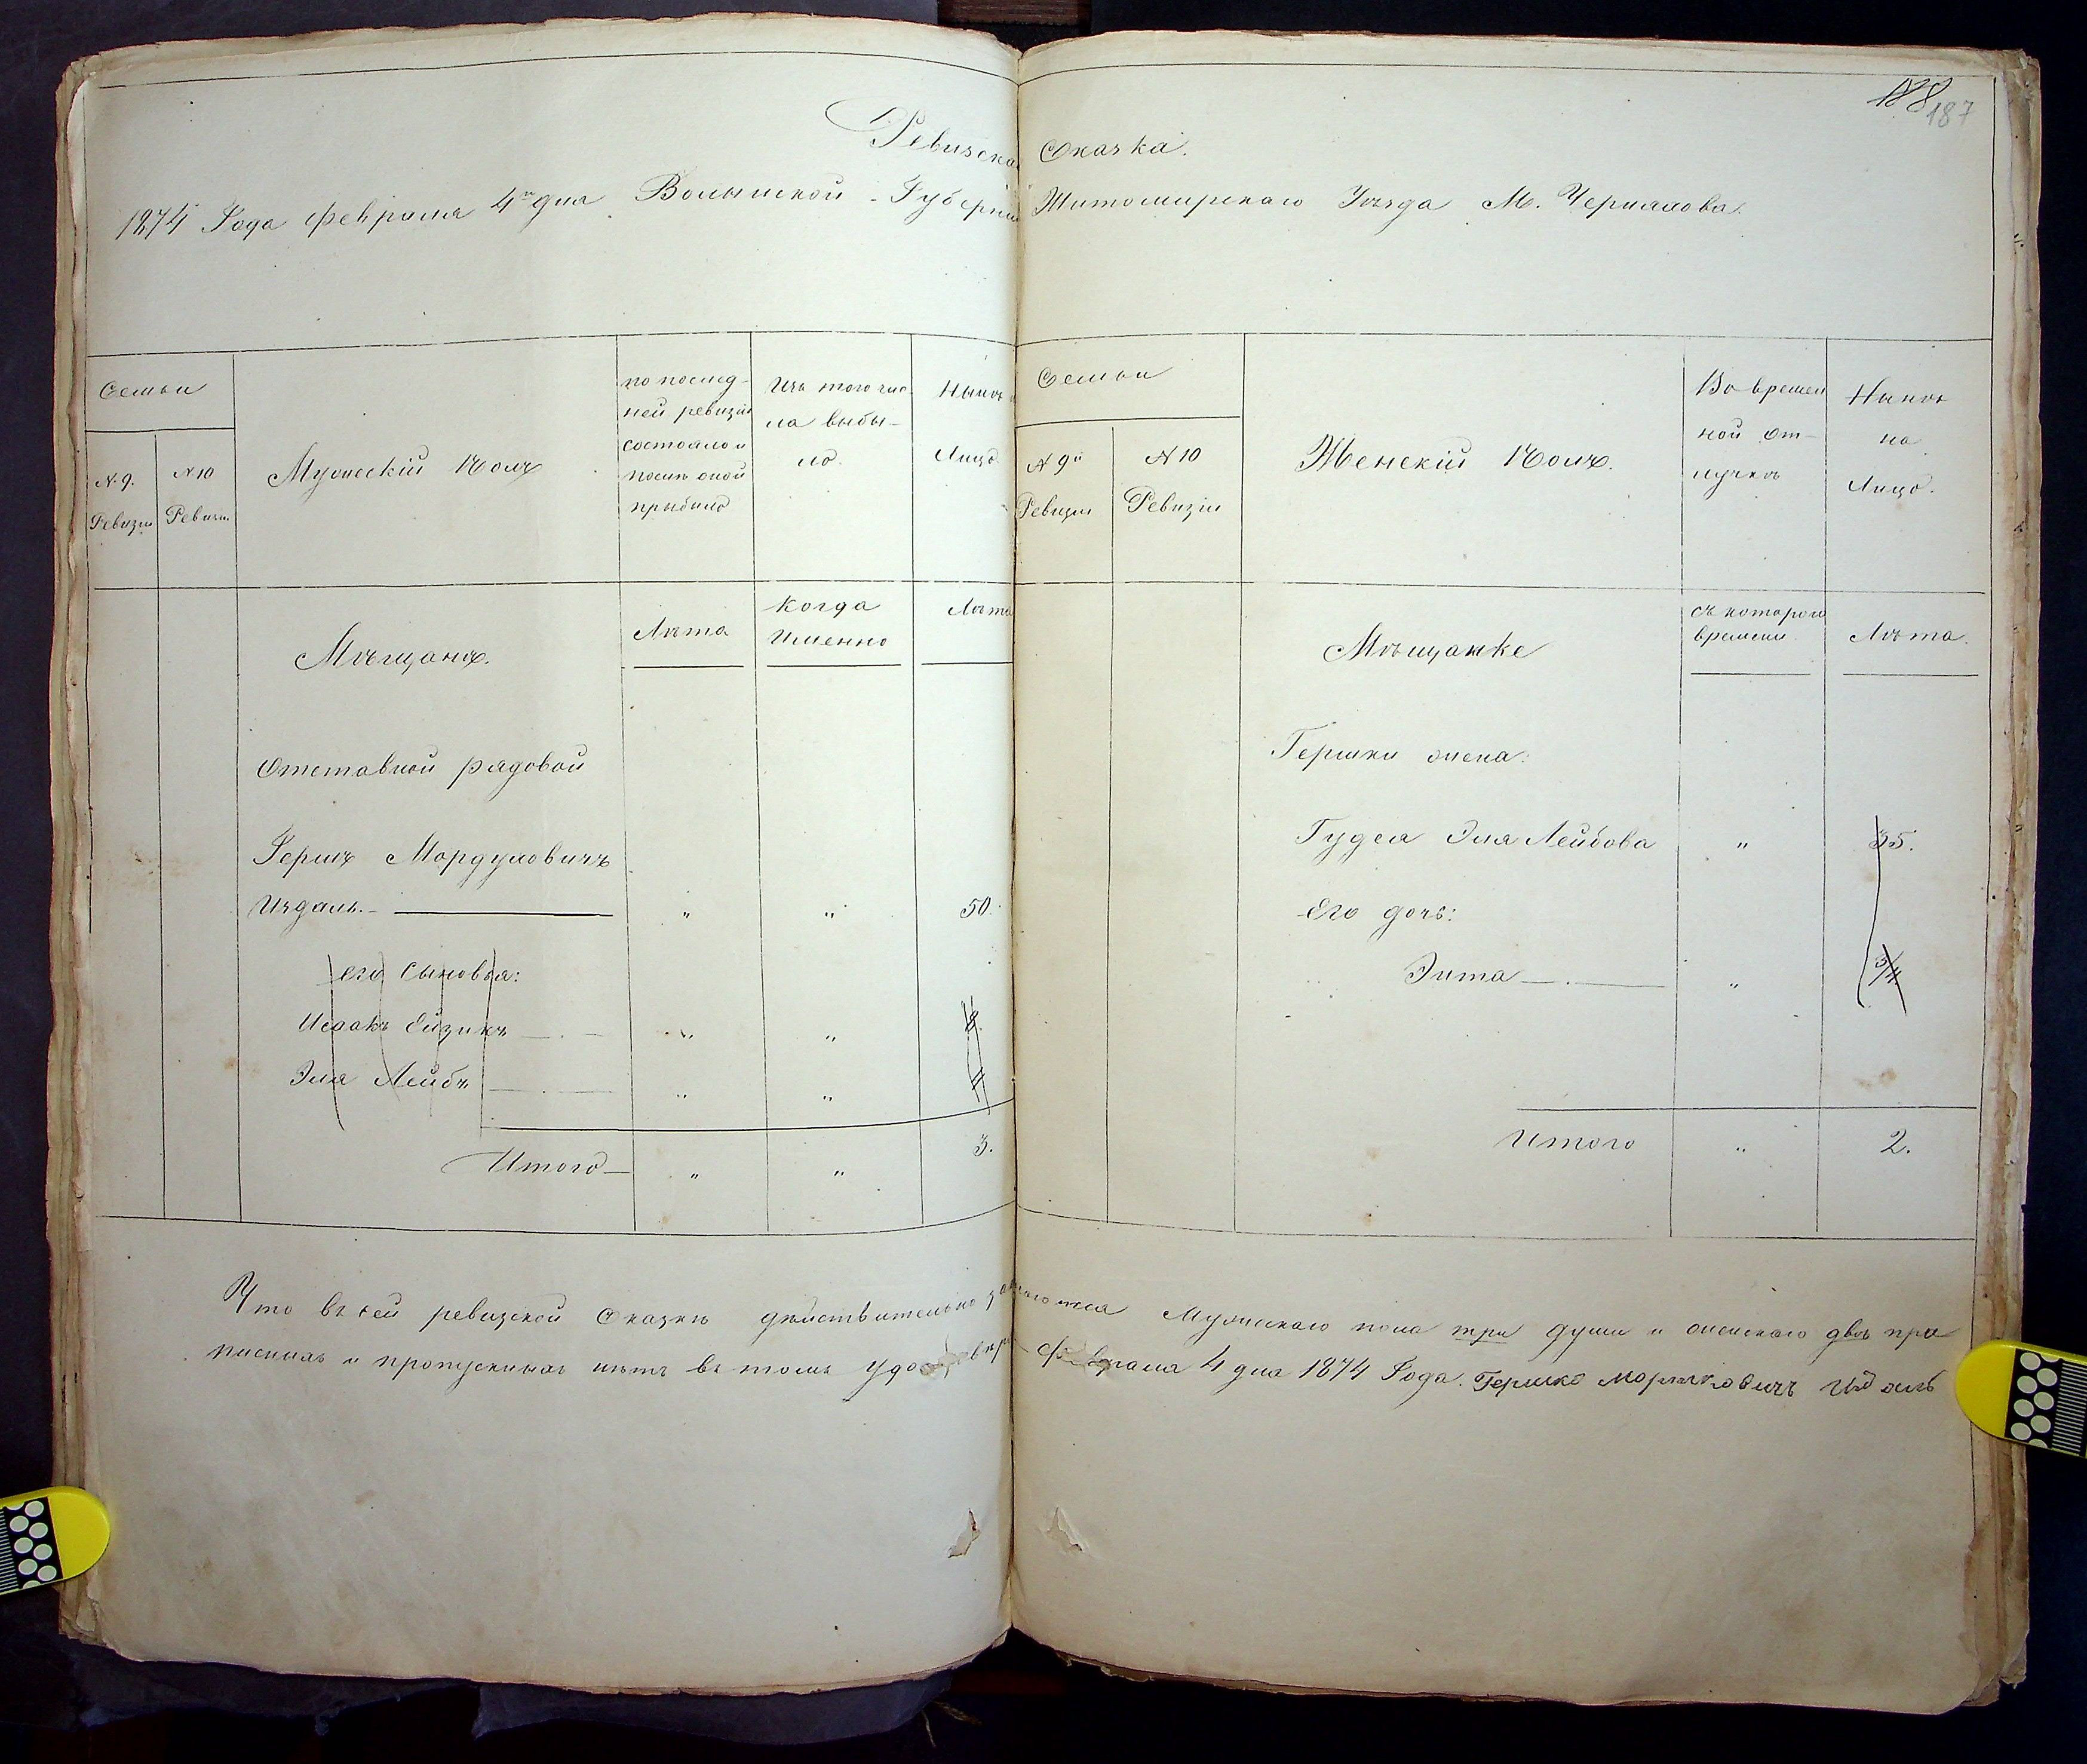 188
187
Ревизская Сказка.
1874 Года февраля 4го дня Волынской Губерніи Житомирскаго Уѣзда М. Черняхова.
Семьи
N. 9. Ревизіи
N 10 Ревизіи
Мужескій полъ
по послед-
ней ревизіи
состояло и
послѣ оной
прыбыло
Изъ того чис
ла выбы-
ло.
Нынѣ
Лицо
Мѣщанъ.
Лѣта
Когда
Именно
Лѣта
Отставной рядовой
Гершъ Мордуховичъ
Издаль. — " " 50.
его Сыновья:
Исаакъ Ейзикъ — " "
Эля Лейбъ — " "
Итого — " " 3.
Семьи
N 9й Ревизіи
N 10 Ревизіи
Женскій полъ.
Во времен
ной от-
лучкѣ
Нынѣ
на
Лицо.
Мѣщанке
съ котораго
времени
Лѣта.
Гершки жена:
Гудея Эля Лейбова " 35.
Его дочь:
Эита — "
Итого " 2.
Что въ сей ревизской Сказкѣ дѣйствительно Мужескаго пола три души и женскаго двѣ про
писныхъ и пропускныхъ нѣтъ въ томъ Февраля 4 дня 1874 Года. Гершко